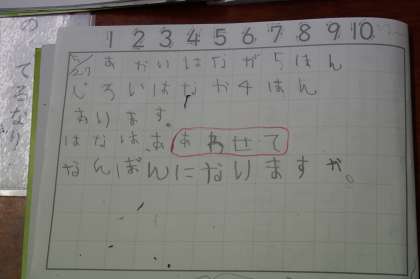 1 2 3 4 5 6 7 8 9 10
5/27 あかいはながらはん
しろいはなが4はん
あります。
はなは、ああわせて
なんぼんになりますか。
のてるなり